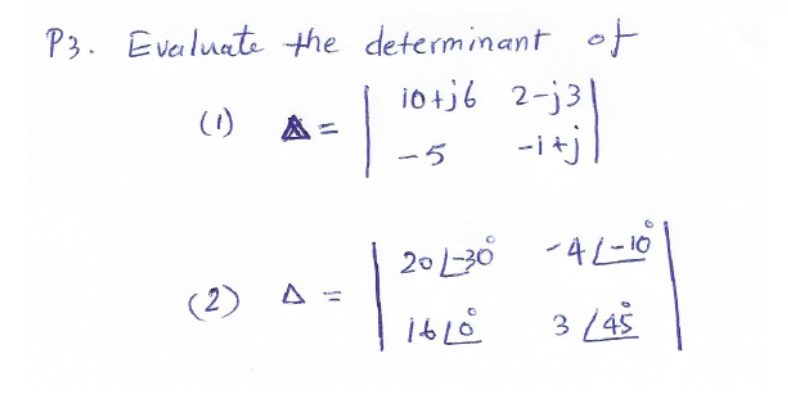 P3. Evaluate the determinant of
(1) Δ = | 10+j6 2-j3 |
| -5 -1+j |
(2) Δ = | 20∠-30° -4∠-10° |
| 16∠0° 3∠45° |